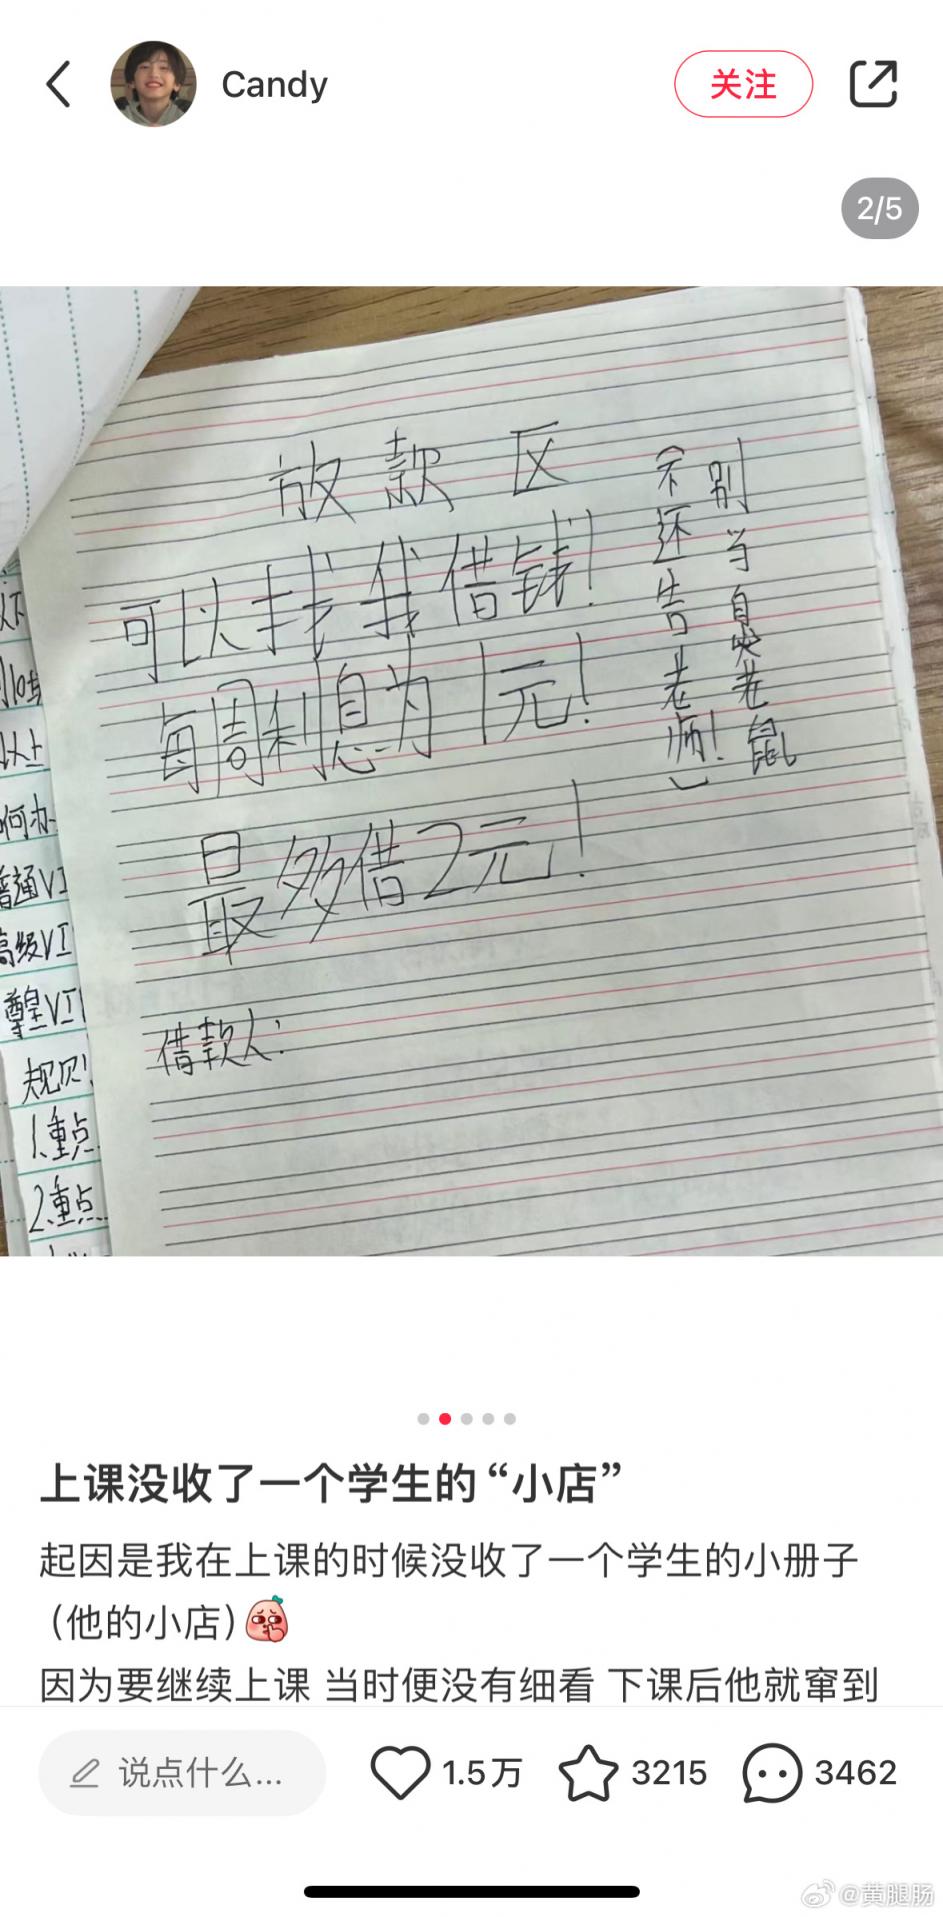 Candy
关注
2/5
放款区
可以找我借钱！
每周利息为1元！
最多借2元！
借款人：
别当臭老鼠
（不还告老师！）
何办
普通VI
高级VI
尊皇VI
规则
1.重点
2.重点
上课没收了一个学生的“小店”
起因是我在上课的时候没收了一个学生的小册子
（他的小店）
因为要继续上课 当时便没有细看 下课后他就窜到
说点什么...
1.5万
3215
3462
@黄腿肠